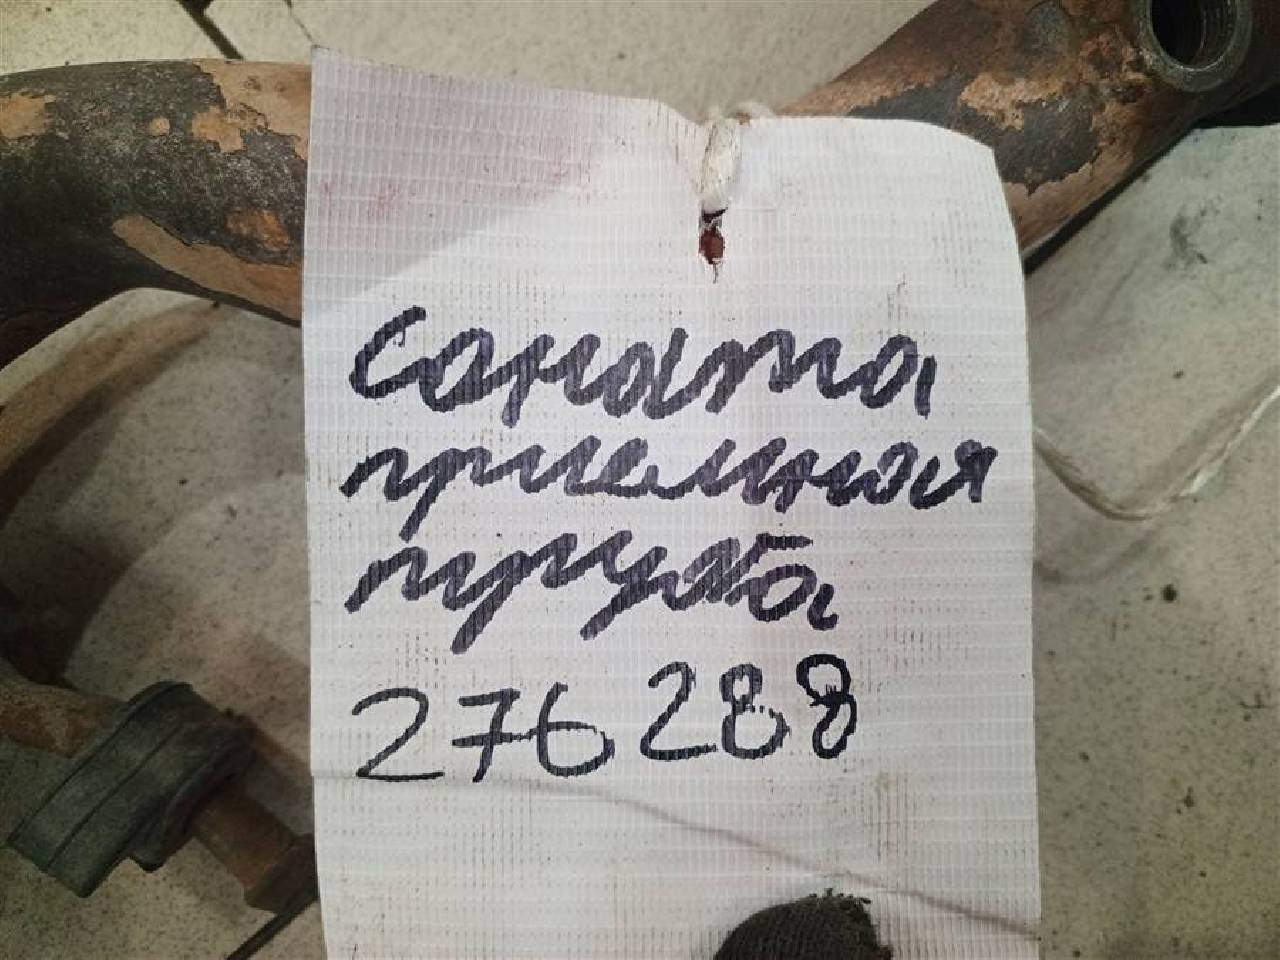 Соната
приемная
труба
276288